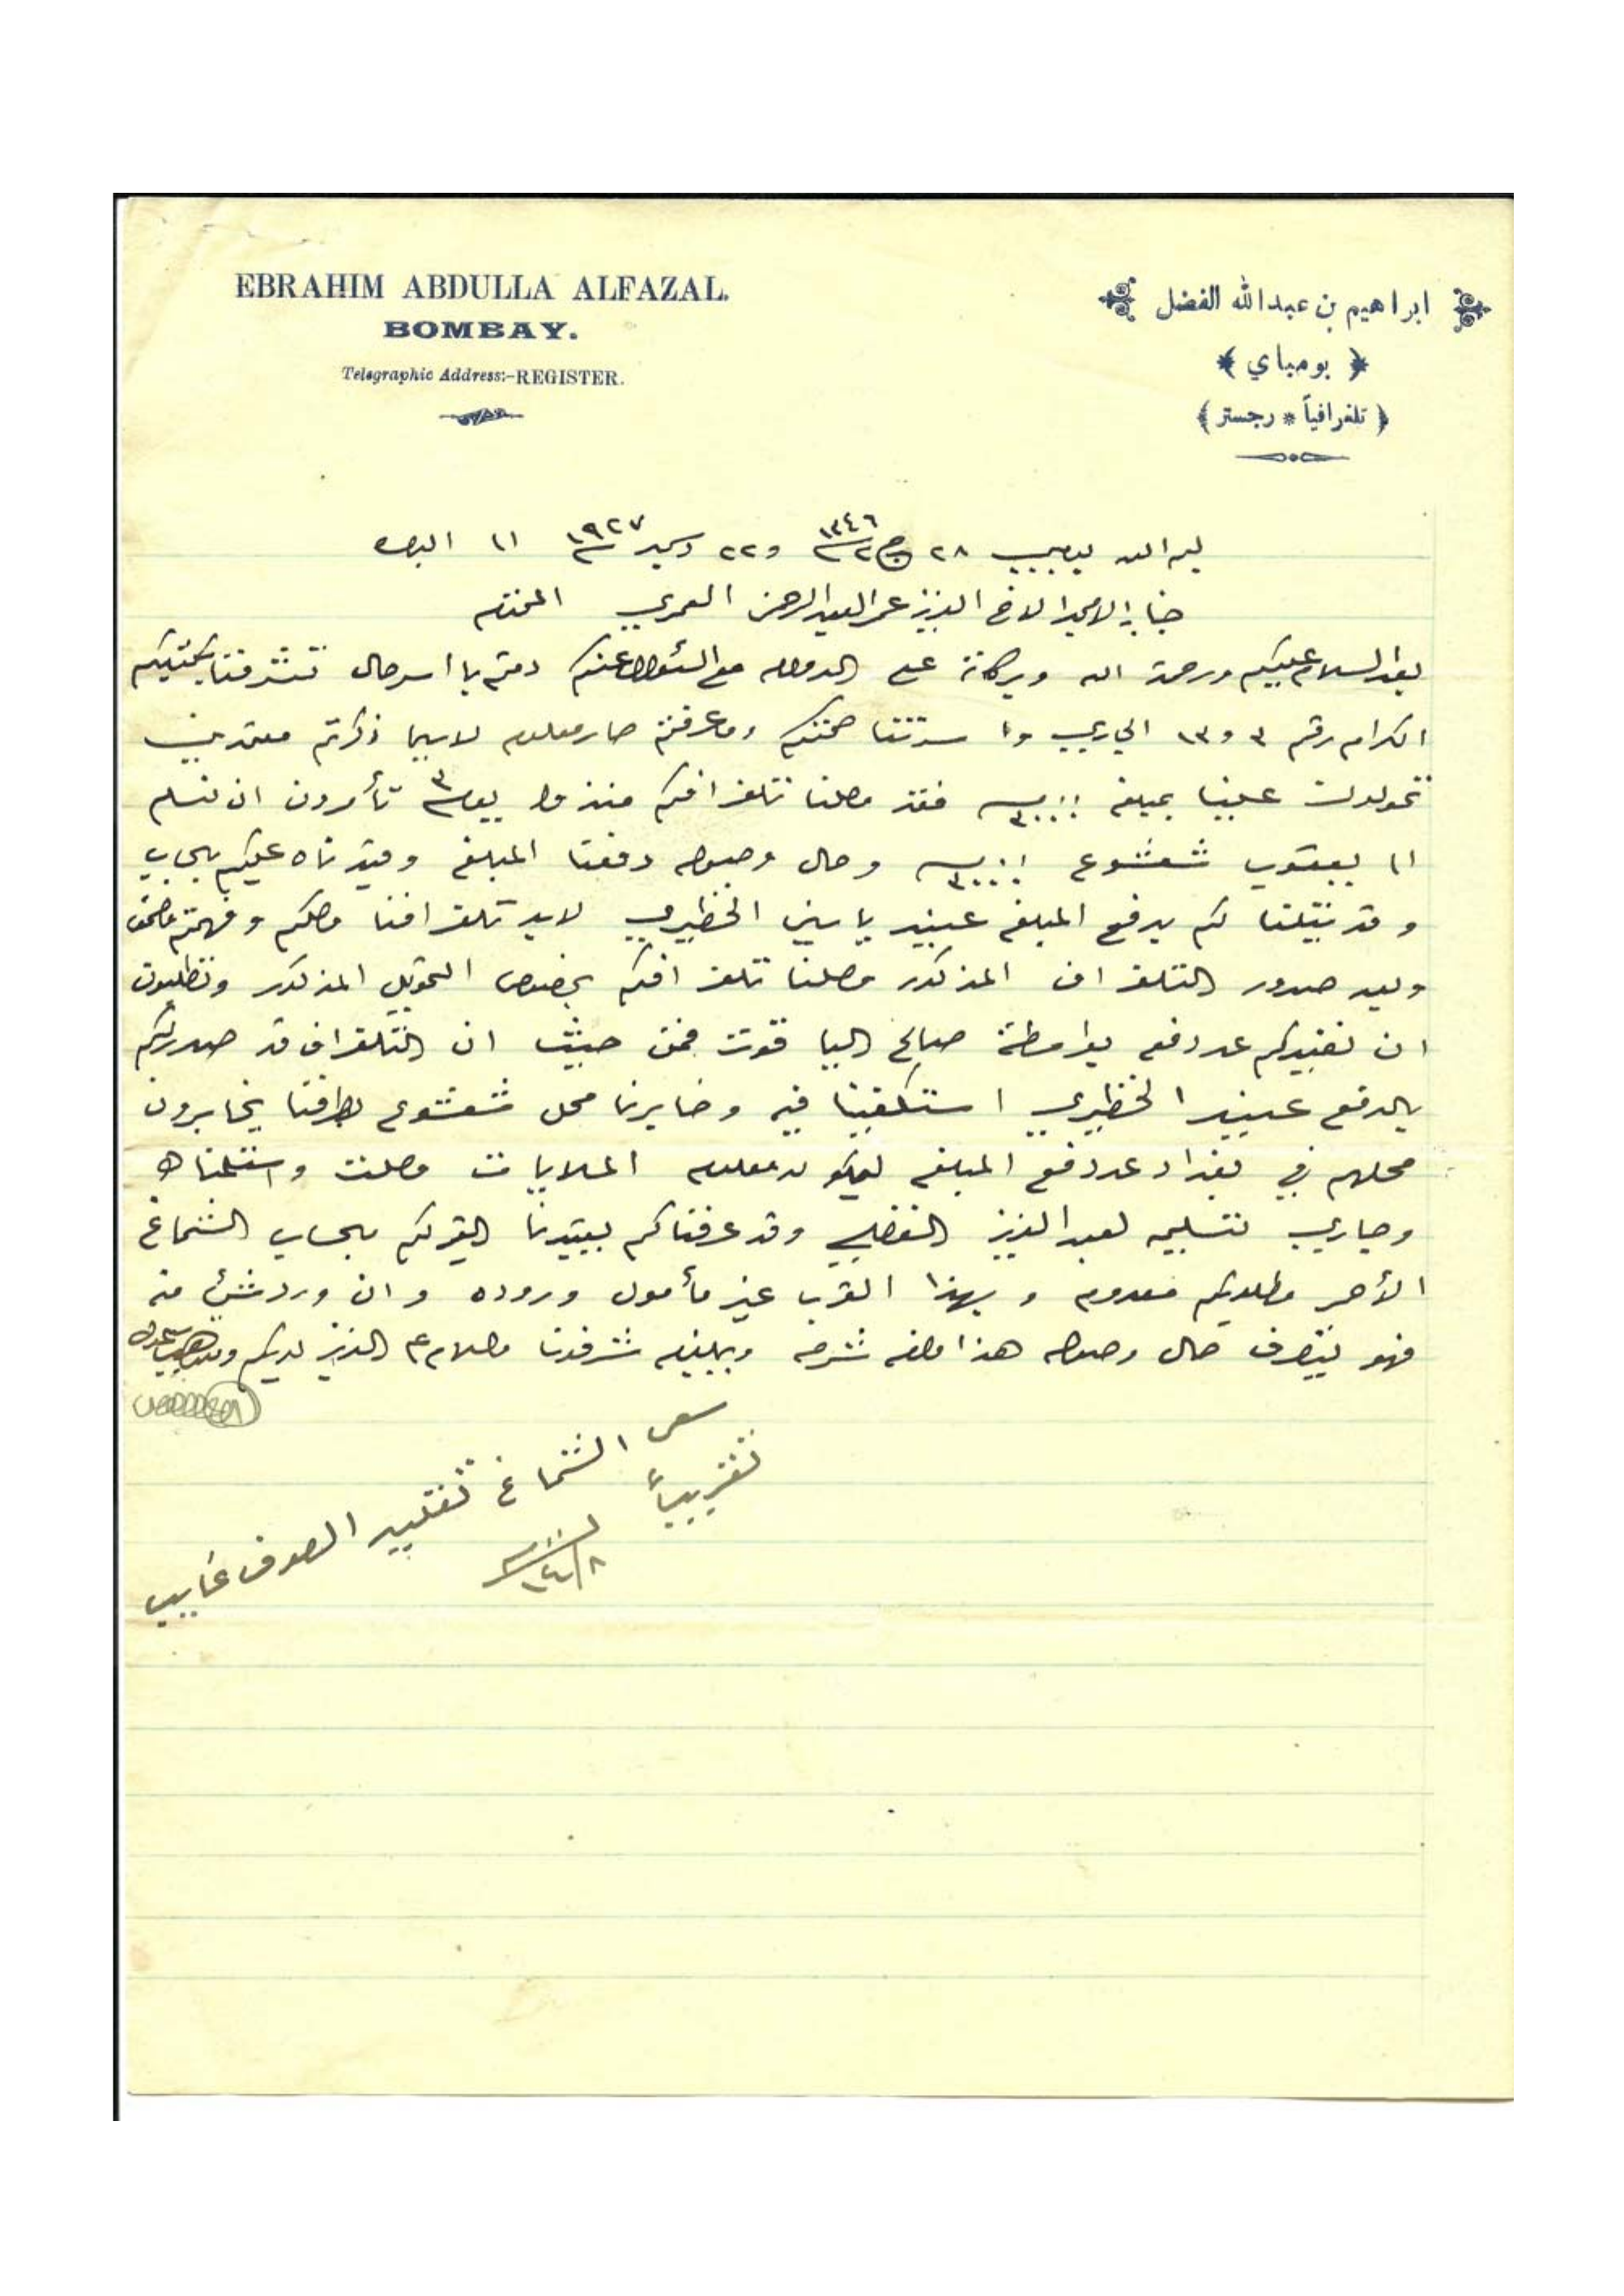 EBRAHIM ABDULLA ALFAZAL.
BOMBAY.
Telegraphic Address:-REGISTER.
ابراهيم بن عبدالله الفضل
﴿ بومباي ﴾
( تلغرافياً * رجستر )
بسم الله بمبي ٢٨ ج٢ ١٣٤٦ و ٢٢ دسمبر ١٩٢٧ الى البصره
جناب الامجد الاخ العزيز عمر العبدالرحمن العمري المحترم
بعد السلام عليكم ورحمة الله وبركاته على الدوام مع السئوال عنكم دمتم باسر حال تشرفنا بكتبكم
الكرام رقم ٣ و ١٣ الجاري وا سرتنا صحتكم وما عرفتم صار معلوم لاسيما ذكرتم معتمدين
تحولون علينا بمبلغ ٣٠٠٠٠ فقد وصلنا تلغرافكم منذ يوم ٣ تأمرون ان نسلم
الى يعقوب شعشوع ٣٠٠٠٠ وحال وصوله دفعنا المبلغ وقيدناه عليكم بحساب
وقد نيتلنا لكم بدفع المبلغ عبيد ياسين الخظيري لابد تلغرافنا وصلكم وفهمتم مضمونه
وبعد صدور التلغراف المذكور وصلنا تلغرافكم بخصوص التحويل المذكور وتطلبون
ان نفيدكم عن دفعه بواسطة صالح اليا قوت فمن حيث ان التلغراف قد صدر لكم
بالدفع عبيد الخظيري استكفينا فيه وخابرنا محل شعشوع بطرفنا يخابرون
محلهم في بغداد عن دفع المبلغ ليكون معلوم العبايات وصلت واستلمناها
وجاري تسليمه لعبدالعزيز الفضلي وقد عرفناكم بقيدنا القر لكم بحساب الشماغ
الأحمر مطلوبكم معدوم وبهذا القرب غير مأمول وروده وان ورد شئ منه
فهو يتصرف حال وصوله هذا ما لزم شرحه وبلزم شرفونا والسلام على العزيز لديكم
سعر الشماغ تقليد الصوف غايب
تقريباً
١٤/٨